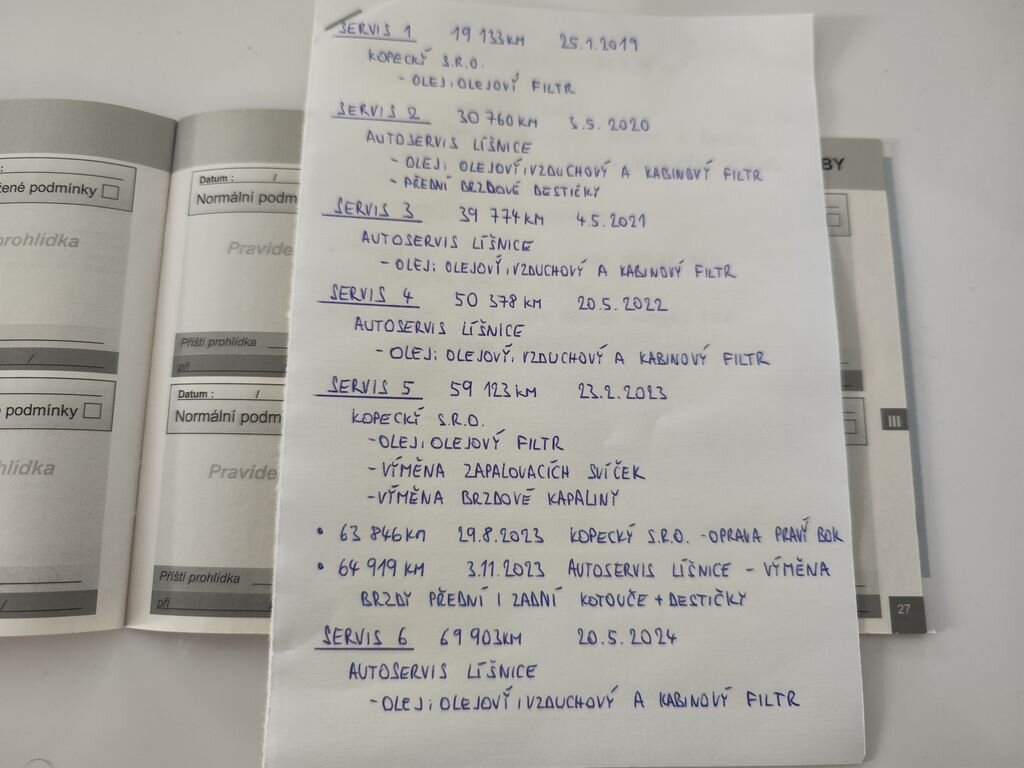 SERVIS 1 19 133 KM 25.1.2019
KOPECKÝ S.R.O.
- OLEJ, OLEJOVÝ FILTR
SERVIS 2 30 760 KM 3.5.2020
AUTOSERVIS LÍŠNICE
- OLEJ, OLEJOVÝ, VZDUCHOVÝ A KABINOVÝ FILTR
- PŘEDNÍ BRZDOVÉ DESTIČKY
SERVIS 3 39 774 KM 4.5.2021
AUTOSERVIS LÍŠNICE
- OLEJ, OLEJOVÝ, VZDUCHOVÝ A KABINOVÝ FILTR
SERVIS 4 50 378 KM 20.5.2022
AUTOSERVIS LÍŠNICE
- OLEJ, OLEJOVÝ, VZDUCHOVÝ A KABINOVÝ FILTR
SERVIS 5 59 123 KM 23.2.2023
KOPECKÝ S.R.O.
- OLEJ, OLEJOVÝ FILTR
- VÝMĚNA ZAPALOVACÍCH SVÍČEK
- VÝMĚNA BRZDOVÉ KAPALINY
• 63 846 KM 29.8.2023 KOPECKÝ S.R.O. - OPRAVA PRAVÝ BOK
• 64 919 KM 3.11.2023 AUTOSERVIS LÍŠNICE - VÝMĚNA
BRZDY PŘEDNÍ I ZADNÍ KOTOUČE + DESTIČKY
SERVIS 6 69 903 KM 20.5.2024
AUTOSERVIS LÍŠNICE
- OLEJ, OLEJOVÝ, VZDUCHOVÝ A KABINOVÝ FILTR
podmínky
prohlídka
/
podmínky
/
Datum : /
Normální podm
Pravide
Příští prohlídka
při
Datum : /
Normální podm
Pravide
Příští prohlídka
při /
BY
III
27